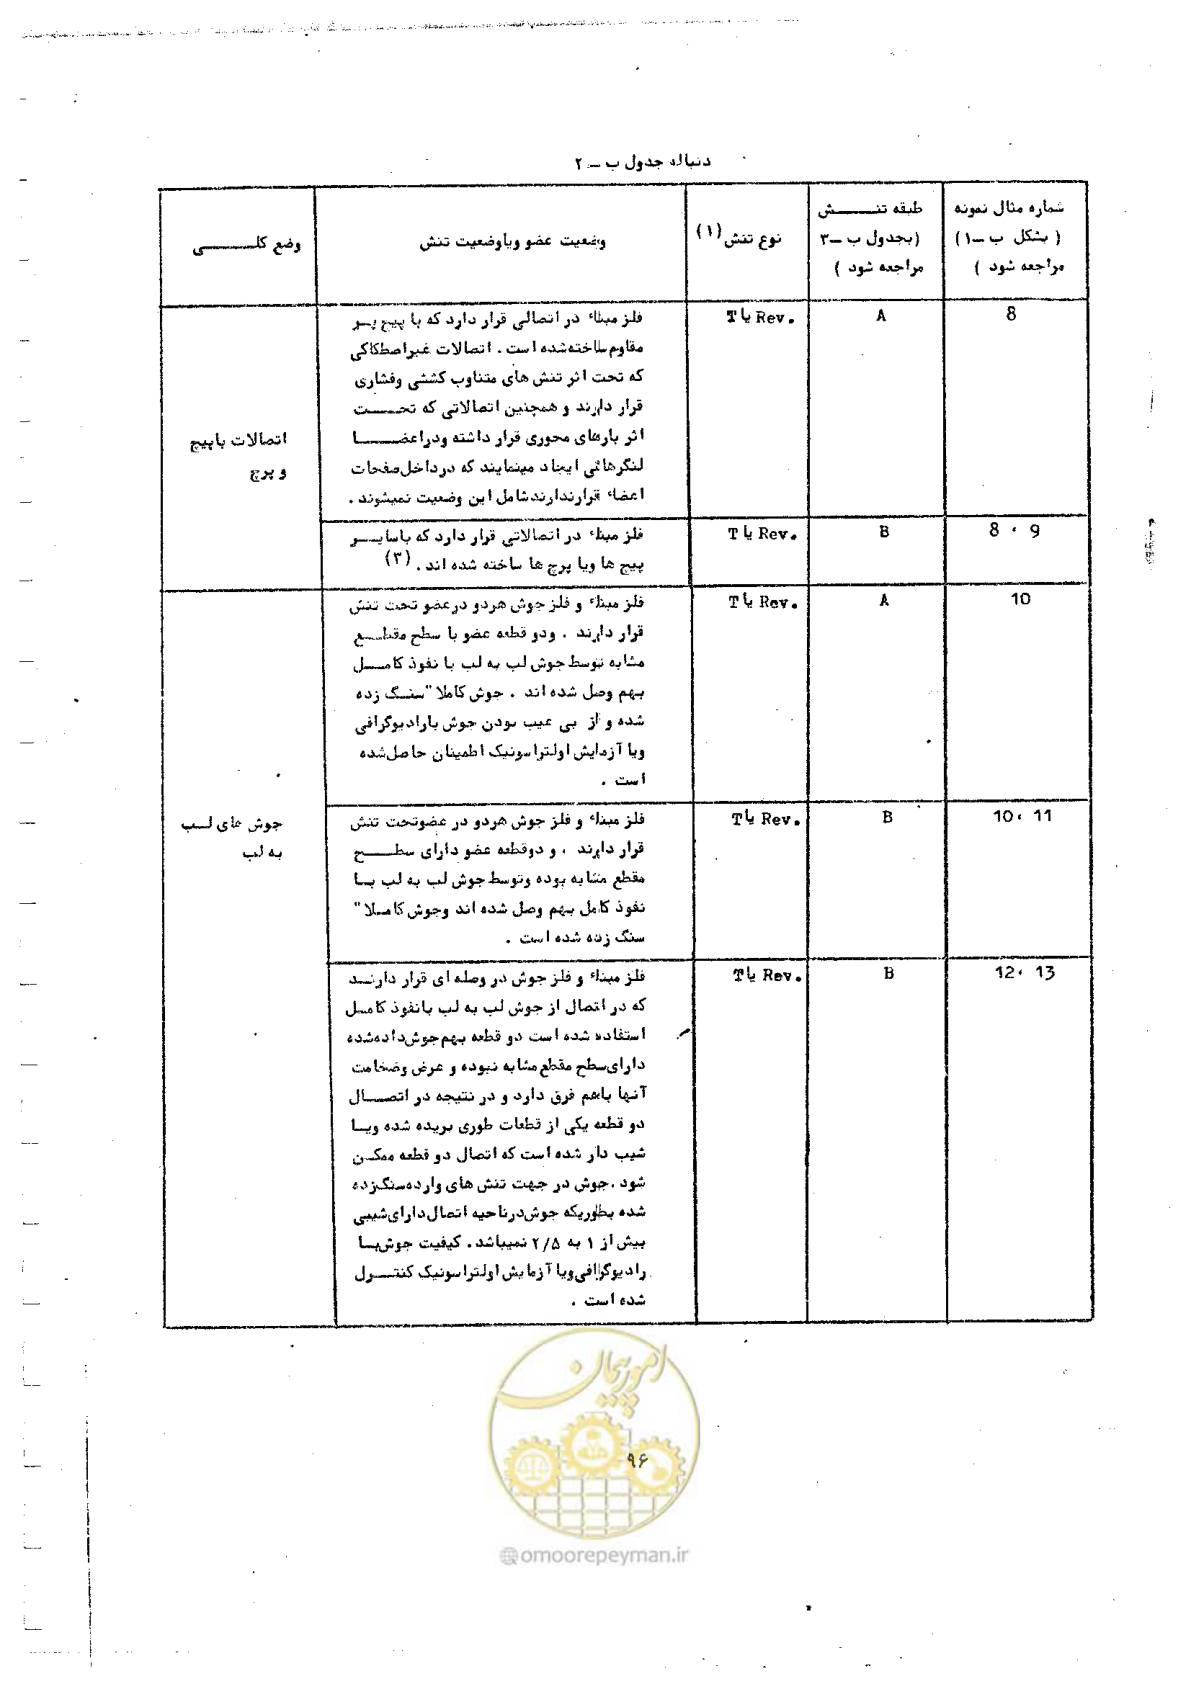 دنباله جدول ب ــ ۲
شماره مثال نمونه
( بشکل ب ــ۱)
مراجعه شود )
طبقه تنــــــش
(بجدول ب ــ۳
مراجعه شود )
نوع تنش (۱)
وضعیت عضو ویاوضعیت تنش
وضع کلـــــــی
8
A
Rev. یا T
فلز مبناء در اتصالی قرار دارد که با پیچ پــر
مقاوم ساخته‌شده است . اتصالات غیراصطکاکی
که تحت اثر تنش های متناوب کششی وفشاری
قرار دارند و همچنین اتصالاتی که تحـــــت
اثر بارهای محوری قرار داشته ودراعضــــــا
لنگرهائی ایجاد مینمایند که درداخل‌صفحات
اعضاء قرارندارندشامل این وضعیت نمیشوند .
اتصالات باپیچ
و پرچ
8 ، 9
B
Rev. یا T
فلز مبناء در اتصالاتی قرار دارد که باسایــر
پیچ ها ویا پرچ ها ساخته شده اند . (۳)
10
A
Rev. یا T
فلز مبناء و فلز جوش هردو درعضو تحت تنش
قرار دارند ، ودو قطعه عضو با سطح مقطــع
مشابه توسط جوش لب به لب با نفوذ کامــل
بهم وصل شده اند . جوش کاملا" سنــگ زده
شده و از بی عیب بودن جوش بارادیوگرافی
ویا آزمایش اولتراسونیک اطمینان حاصل‌شده
است .
جوش های لــب
به لب
10، 11
B
Rev. یا T
فلز مبناء و فلز جوش هردو در عضوتحت تنش
قرار دارند ، و دوقطعه عضو دارای سطـــح
مقطع مشابه بوده وتوسط جوش لب به لب بــا
نفوذ کامل بهم وصل شده اند وجوش کامــلا"
سنگ زده شده است .
12، 13
B
Rev. یا T
فلز مبناء و فلز جوش در وصله ای قرار دارنــد
که در اتصال از جوش لب به لب بانفوذ کامــل
استفاده شده است دو قطعه بهم‌جوش‌داده‌شده
دارای‌سطح مقطع‌مشابه نبوده و عرض وضخامت
آنها باهم فرق دارد و در نتیجه در اتصـــال
دو قطعه یکی از قطعات طوری بریده شده ویــا
شیب دار شده است که اتصال دو قطعه ممکــن
شود ،جوش در جهت تنش های وارده‌سنگ‌زده
شده بطوریکه جوش‌درناحیه اتصال‌دارای‌شیبی
بیش از ۱ به ۲/۵ نمیباشد . کیفیت جوش‌بــا
رادیوگرافی‌ویا آزمایش اولتراسونیک کنتــرل
شده است .
امور پیمان
۹۶
@omoorepeyman.ir